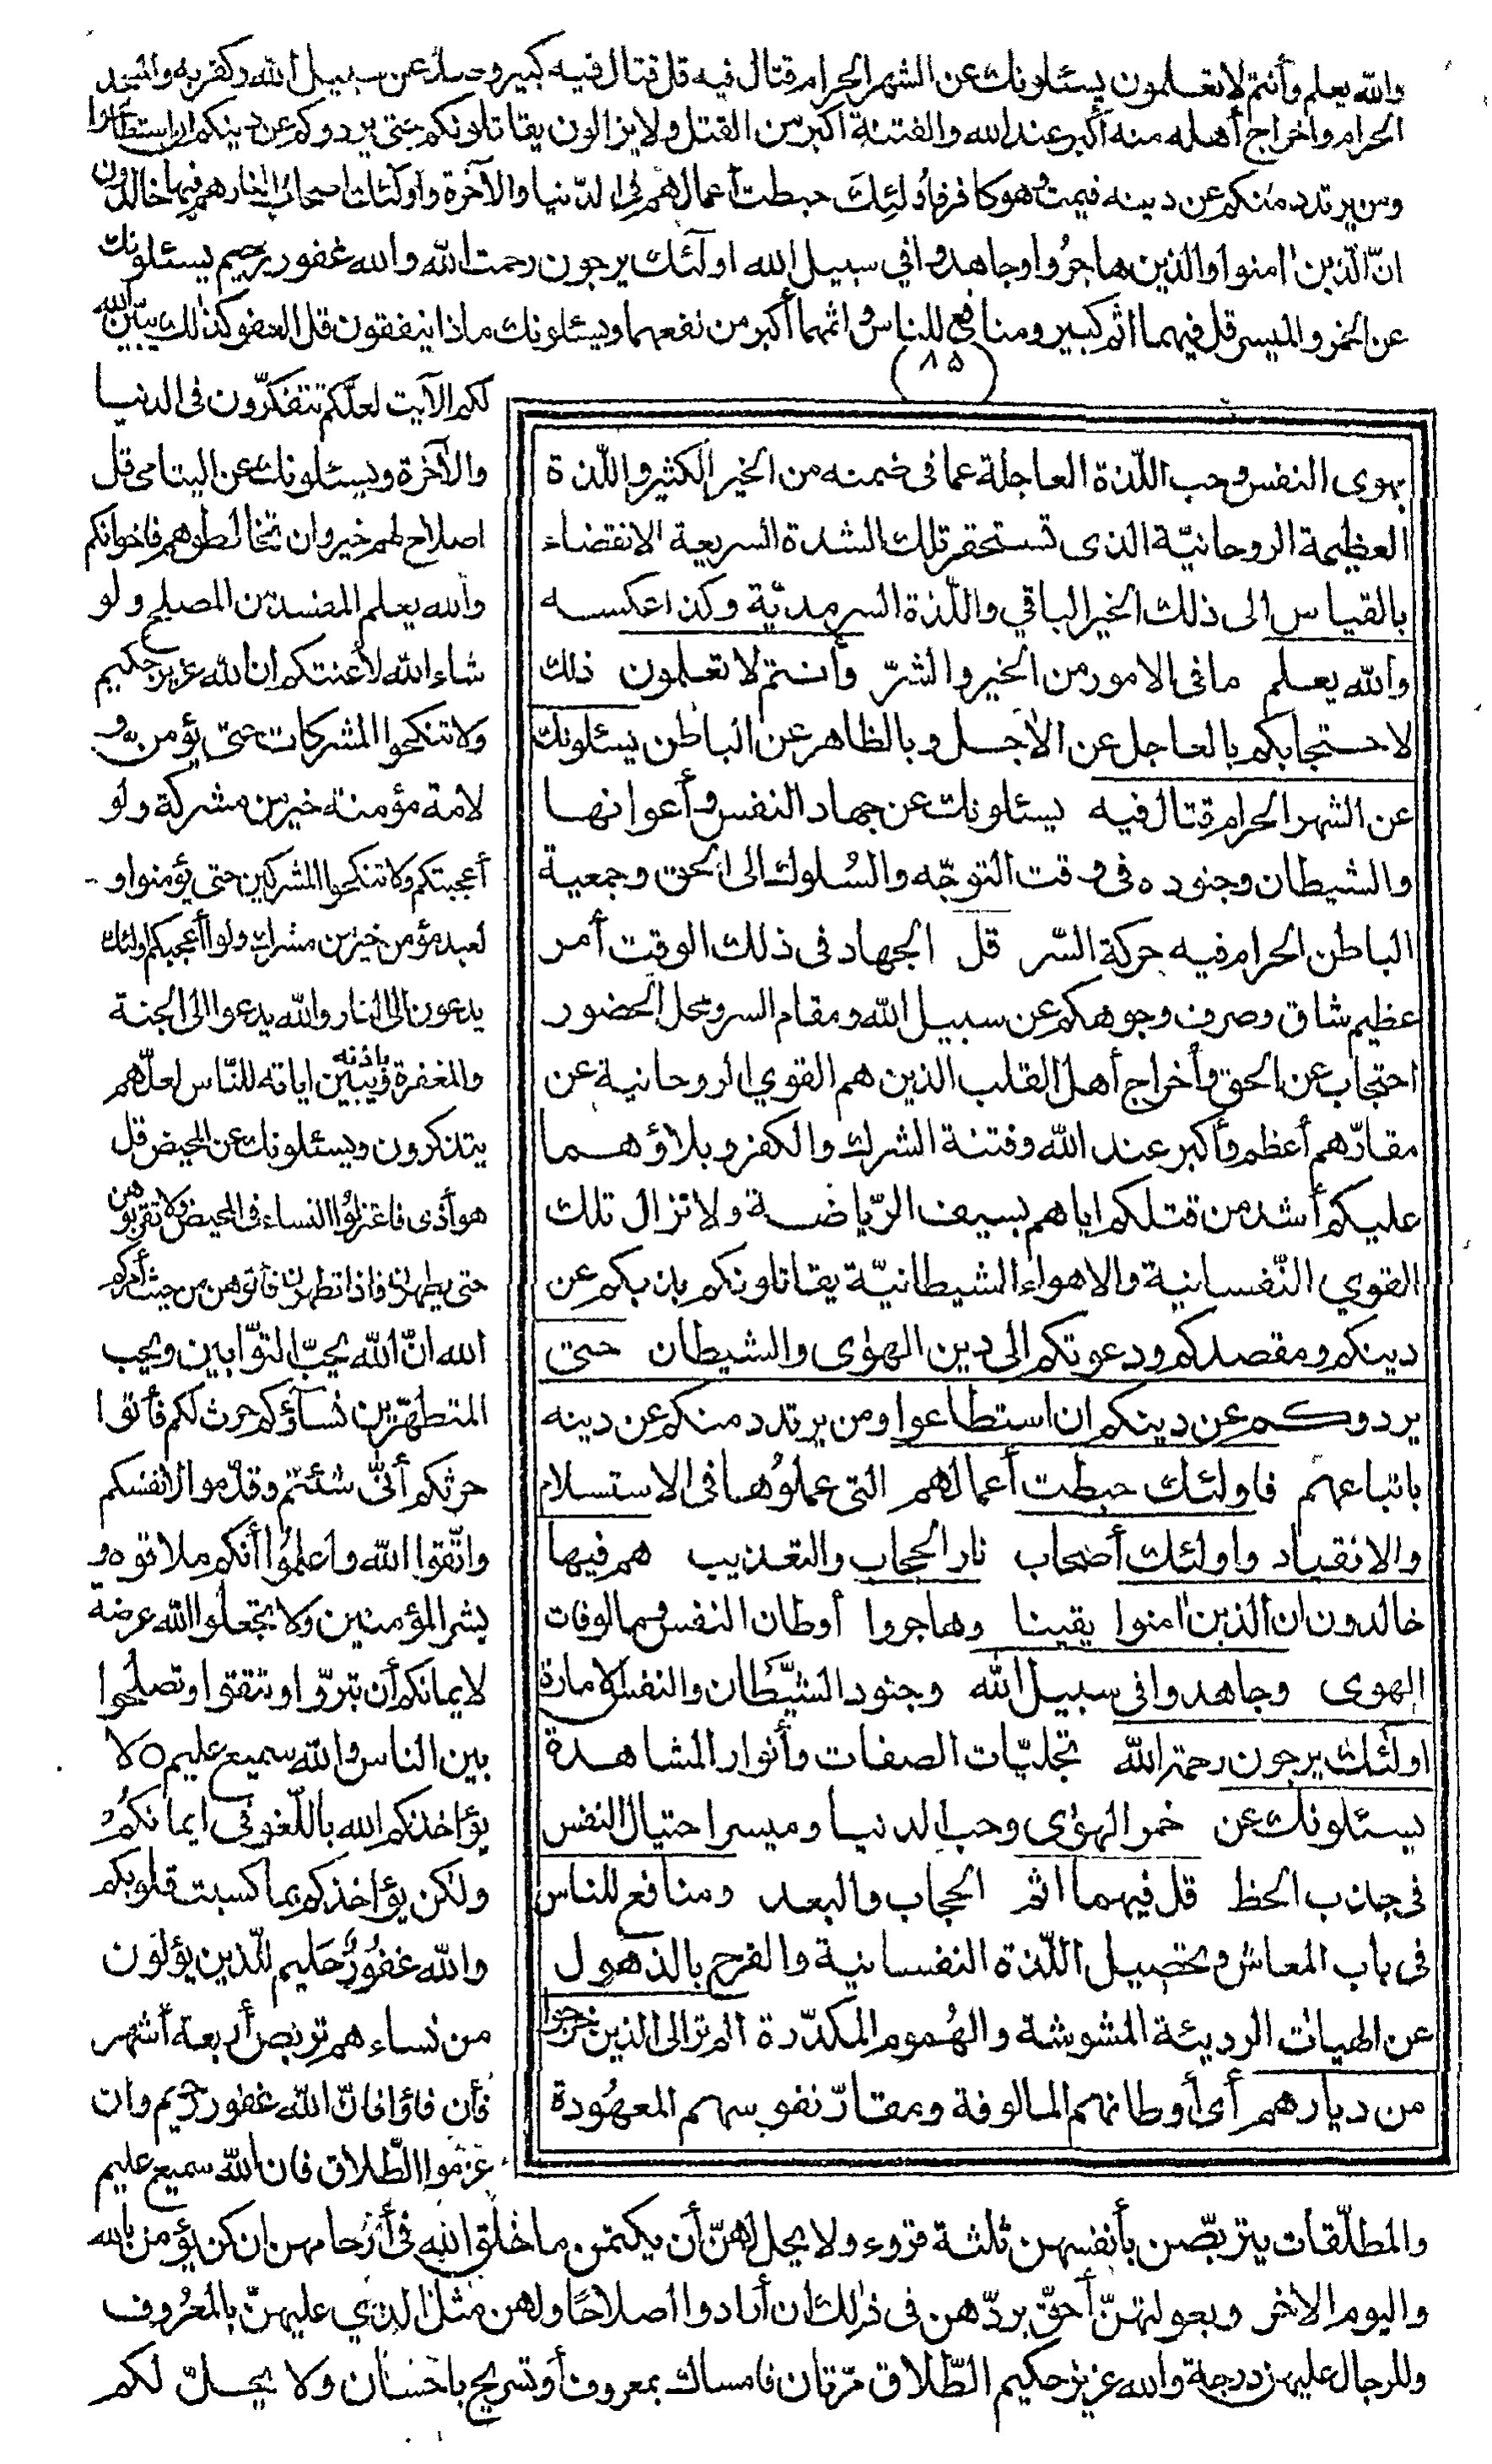 والله يعلم وأنتم لا تعلمون يسئلونك عن الشهر الحرام قتال فيه قل قتال فيه كبير وصد عن سبيل الله وكفر به والمسجد
الحرام واخراج أهله منه أكبر عند الله والفتنة أكبر من القتل ولا يزالون يقاتلونكم حتى يردوكم عن دينكم ان استطاعوا
ومن يرتدد منكم عن دينه فيمت وهو كافر فاولئك حبطت أعمالهم فى الدنيا والآخرة واولئك اصحاب النار هم فيها خالدون
انّ الّذين اٰمنوا والذين هاجرُوا وجاهدوا في سبيل الله اولٓئك يرجون رحمت الله والله غفور رحيم يسئلونك
عن الخمر والميسر قل فيهما اثم كبير ومنافع للناس واثمهما أكبر من نفعهما ويسئلونك ماذا ينفقون قل العفو كذٰلك يبيّن الله
(٨٥)
لكم الآيت لعلّكم تتفكّرون فى الدنيا
والآخرة ويسئلونك عن اليتامى قل
اصلاح لهم خير وان تخالطوهم فاخوانكم
والله يعلم المفسد من المصلح ولو
شاء الله لأعنتكم ان الله عزيز حكيم
ولا تنكحوا المشركات حتى يؤمن و
لامة مؤمنة خير من مشركة ولو
أعجبتكم ولا تنكحوا المشركين حتى يؤمنوا و
لعبد مؤمن خير من مشرك ولو أعجبكم اولئك
يدعون الى النار والله يدعوا الى الجنة
والمغفرة باذنه ويبيّن اياته للنّاس لعلّهم
يتذكرون ويسئلونك عن المحيض قل
هو أذى فاعتزلُوا النساء فى المحيض ولا تقربوهن
حتى يطهرن فاذا تطهرن فأتوهن من حيث أمركم
الله انّ الله يحبّ التوّابين ويحب
المتطهّرين نسآؤكم حرث لكم فأتوا
حرثكم أنّى شئتم وقدّموا لانفسكم
واتّقوا الله واعلمُوا أنكم ملاقوه و
بشر المؤمنين ولا تجعلوا الله عرضة
لايمانكم أن تبرّوا وتتقوا وتصلحُوا
بين الناس والله سميع عليم ٥ لا
يؤاخذكم الله باللّغو فى ايمانكمْ
ولٰكن يؤاخذكم بما كسبت قلوبكم
والله غفُورٌ حَليم للّذين يؤلَون
من نساءهم تربص أربعة أشهر
فأن فاؤا فانّ الله غفور رحيم وان
عزموا الطّلاق فان الله سميع عليم
بهوى النفس وحب اللّذة العاجلة عما فى ضمنه من الخير الكثير واللّذة
العظيمة الروحانيّة الذى تستحقر تلك الشدة السريعة الانقضاء
بالقياس الى ذلك الخير الباقي واللّذة السرمديّة وكذا عكسه
والله يعلم ما فى الامور من الخير والشرّ وأنتم لا تعلمون ذلك
لاحتجابكم بالعاجل عن الآجل وبالظاهر عن الباطن يسئلونك
عن الشهر الحرام قتال فيه يسئلونك عن جهاد النفس وأعوانها
والشيطان وجنوده فى وقت التوجّه والسُلوك الى الحق وجمعية
الباطن الحرام فيه حركة السّر قل الجهاد فى ذلك الوقت أمر
عظيم شاق وصرف وجوهكم عن سبيل الله ومقام السر ومحل الحضور
احتجاب عن الحق وأخراج أهل القلب الذين هم القوي الروحانية عن
مقارّهم أعظم وأكبر عند الله وفتنة الشرك والكفر وبلاؤهما
عليكم أشد من قتلكم اياهم بسيف الرّياضة ولا تزال تلك
القوي النّفسانية والاهواء الشيطانيّة يقاتلونكم بذبكم عن
دينكم ومقصدكم ودعوتكم الى دين الهوٰى والشيطان حتى
يردوكم عن دينكم ان استطاعوا ومن يرتدد منكم عن دينه
باتباعهم فاولئك حبطت أعمالهم التى عملوُها فى الاستسلام
والانقياد واولئك أصحاب نار الحجاب والتعذيب هم فيها
خالدون ان الذين اٰمنوا يقينا وهاجروا أوطان النفس ومالوفات
الهوى وجاهدوا فى سبيل الله وجنود الشّيطان والنفس الامارة
اولئك يرجون رحمة الله تجليّات الصفات وأنوار المشاهدة
يسئلونك عن خمر الهوٰى وحب الدنيا وميسر احتيال النفس
فى جذب الحظ قل فيهما اثم الحجاب والبعد ومنافع للناس
فى باب المعاش وتحصيل اللّذة النفسانية والفرح بالذهول
عن الهيات الرديئة المشوشة والهُموم المكدّرة الم تر الى الذين خرجوا
من ديارهم أى أوطانهم المالوفة ومقارّ نفوسهم المعهُودة
والمطلّقات يتربّصن بأنفسهن ثلثة قروء ولا يحل لهنّ أن يكتمن ما خلق الله فى أرحامهن ان كن يؤمن بالله
واليوم الاخر وبعولتهنّ أحقّ بردّهن فى ذٰلك ان أرادوا اصلاحًا ولهن مثل الذي عليهنّ بالمعْرُوف
وللرجال عليهن درجة والله عزيز حكيم الطّلاق مرّتان فامساك بمعروف أو تسريح باحْسان ولا يحلّ لكم